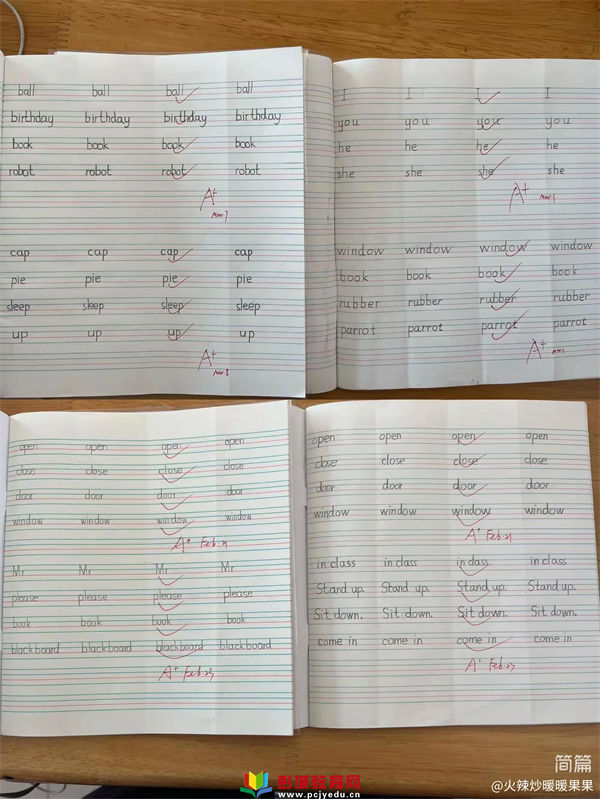 ball ball ball ball
birthday birthday birthday birthday
book book book book
robot robot robot robot
A+
Mar.7
cap cap cap cap
pie pie pie pie
sleep sleep sleep sleep
up up up up
A+
Mar.8
I I I I
you you you you
he he he he
she she she she
A+
Mar.1
window window window window
book book book book
rubber rubber rubber rubber
parrot parrot parrot parrot
A+
Mar.1
open open open open
close close close close
door door door door
window window window window
A+ Feb.21
Mr Mr Mr Mr
please please please please
book book book book
blackboard blackboard blackboard blackboard
A+ Feb.23
open open open open
close close close close
door door door door
window window window window
A+ Feb.21
in class in class in class in class
Stand up. Stand up. Stand up. Stand up.
Sit down. Sit down. Sit down. Sit down.
come in come in come in come in
A+ Feb.23
简篇
@火辣炒暖暖果果
彭诚教育网
www.pcjyedu.cn